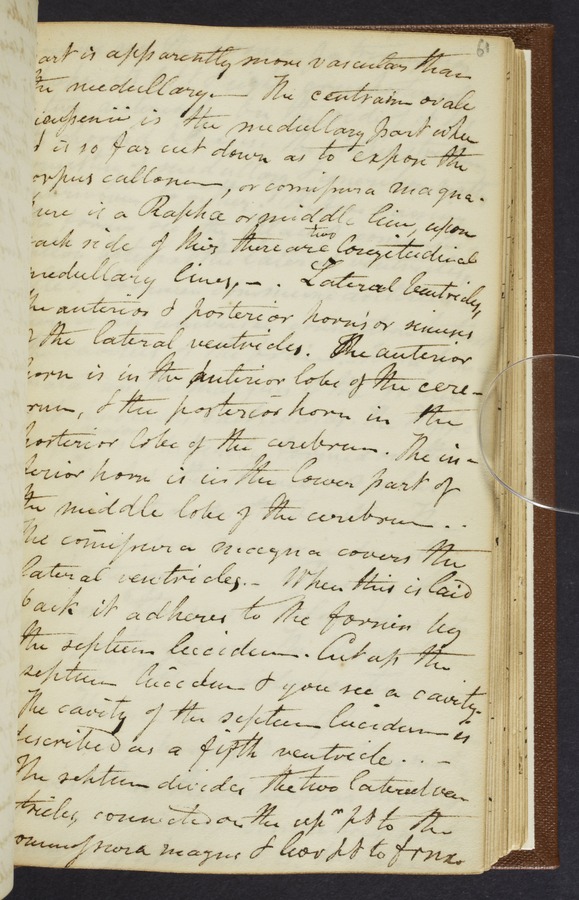 61
art is apparently more vascular than
the medullary — The centrum ovale
is the medullary part when
it is so far cut down as to expose the
orpus callosum, or comifsura magna.
here is a Rapha or middle line, upon
each side of this there are two longitudinal
medullary lines, — . Lateral Ventricles,
the anterior & posterior horns or sinuses
of the lateral ventricles. The anterior
horn is in the anterior lobe of the cere-
rum, & the posterior horn in the
posterior lobe of the cerebrum. The in-
ferior horn is in the lower part of
the middle lobe of the cerebrum ..
The comifsura magna covers the
lateral ventricles. — When this is laid
back it adheres to the fornix by
the septum lucidum. Cut up the
septum lucidum & you see a cavity.
The cavity of the septum lucidum is
described as a fifth ventricle . . —
The septum divides the two lateral ven
tricles, connected on the upr pt to the
ommifsura magna & lowr pt to fornx.